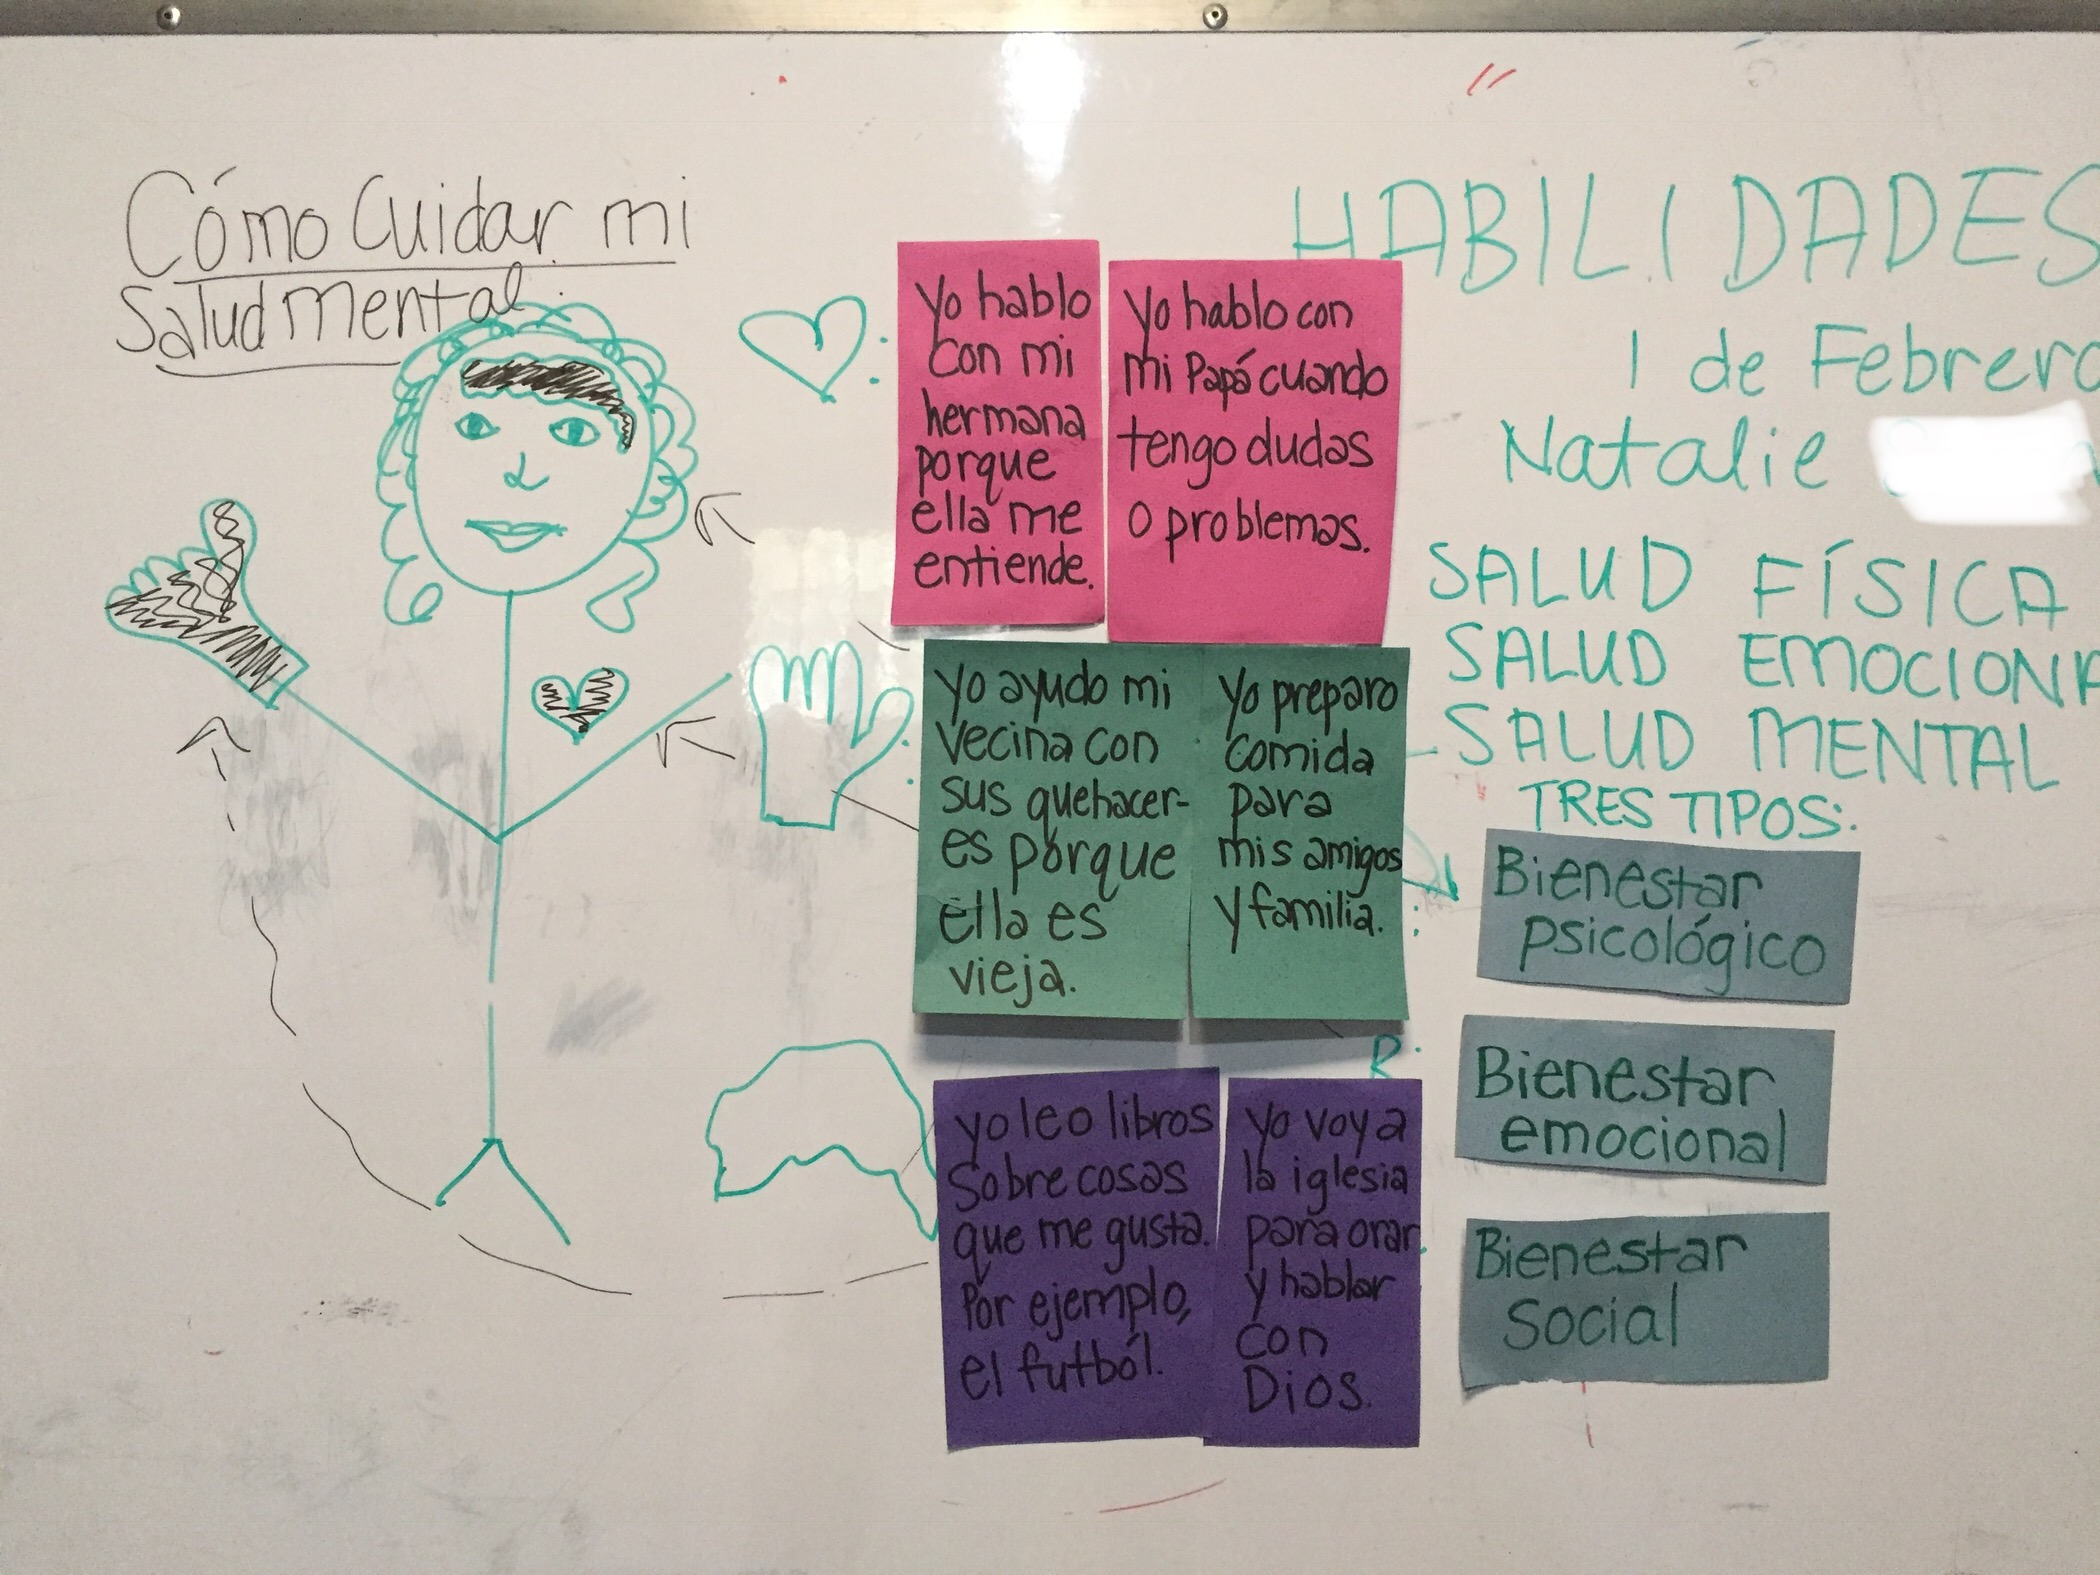 Cómo Cuidar mi
Salud mental:
Yo hablo
con mi
hermana
porque
ella me
entiende.
Yo hablo con
mi Papá cuando
tengo dudas
o problemas.
Yo ayudo mi
vecina con
sus quehacer-
es porque
ella es
vieja.
Yo preparo
comida
para
mis amigos
y familia.
yo leo libros
sobre cosas
que me gusta.
Por ejemplo,
el futból.
Yo voy a
la iglesia
para orar
y hablar
con
Dios.
HABILIDADES
1 de Febrero
Natalie
SALUD FÍSICA
SALUD EMOCIONA
SALUD MENTAL
TRES TIPOS:
Bienestar
psicológico
R:
Bienestar
emocional
Bienestar
social